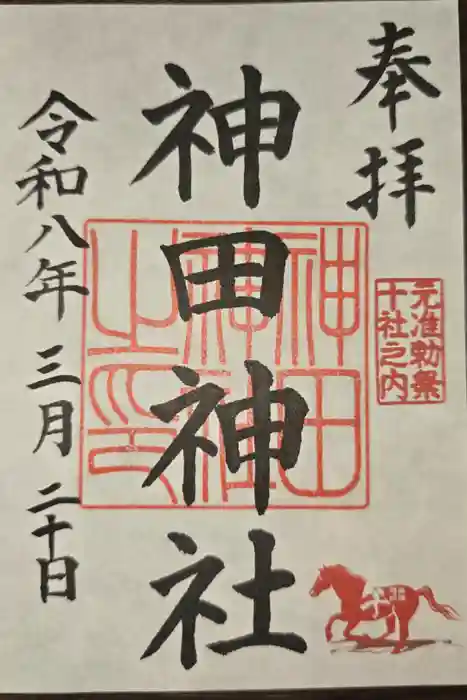 奉拝
元准勅祭
十社之内
神田神社
神田神社之印
令和八年 三月 二十日